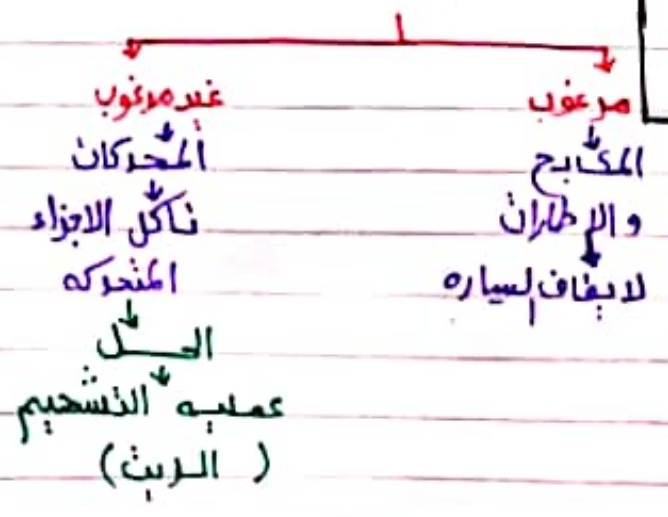 مرغوب
المكابح
والإطارات
لايقاف السياره
غير مرغوب
المحركات
تآكل الاجزاء
المتحركه
الحل
عمليه التشحيم
(الزيت)